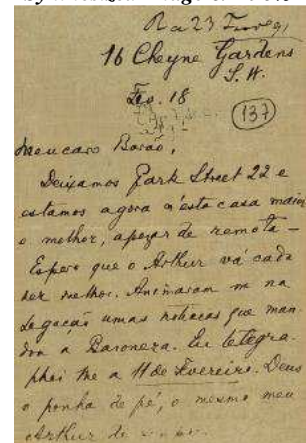 Ra 23 Fev 91
16 Cheyne Gardens
S. W.
Fev. 18
(137)
Meu caro Barão,
Deixamos Park Street 22 e
estamos agora n'esta casa maior
e melhor, apezar de remota –
Espero que o Arthur vá cada
dez melhor. Animaram m na
Legação umas noticias que man
dou a Baroneza. Eu telegra
phei lhe a 11 de Fevereiro. Deus
o ponha de pé, o mesmo meu
Arthur de